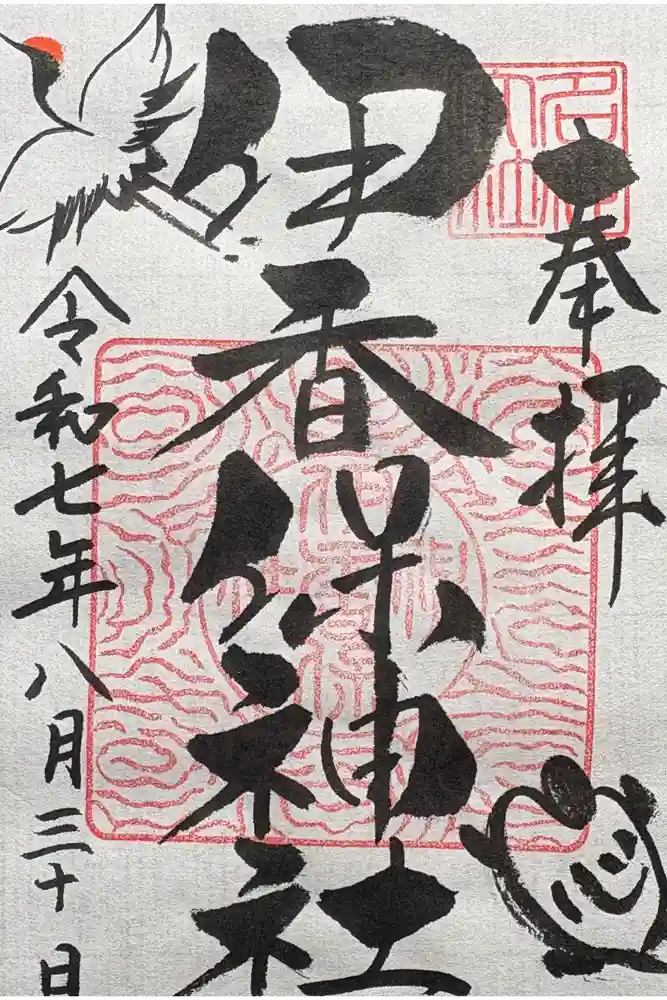 奉拝
伊香保神社
令和七年八月三十日